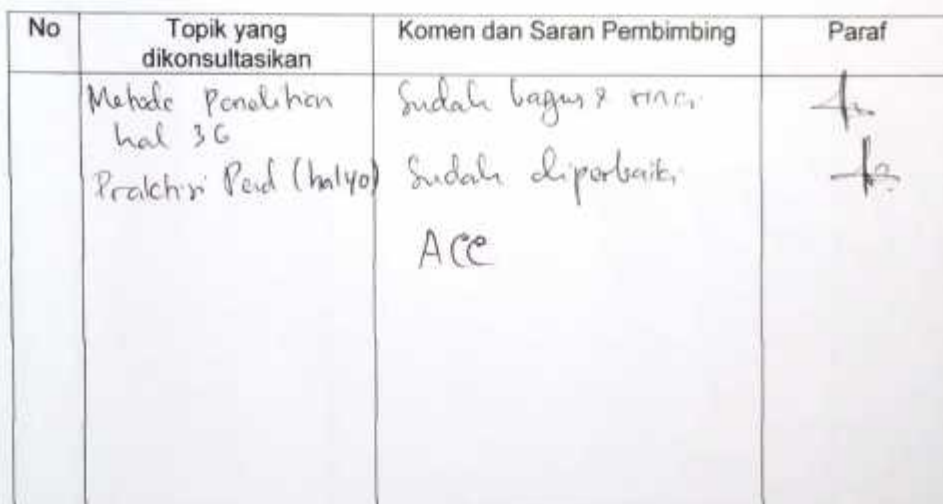 No Topik yang dikonsultasikan Komen dan Saran Pembimbing Paraf
Metode Penelitian Sudah bagus & rinci
hal 36
Praktisi Pend (hal 40) Sudah diperbaiki
ACC